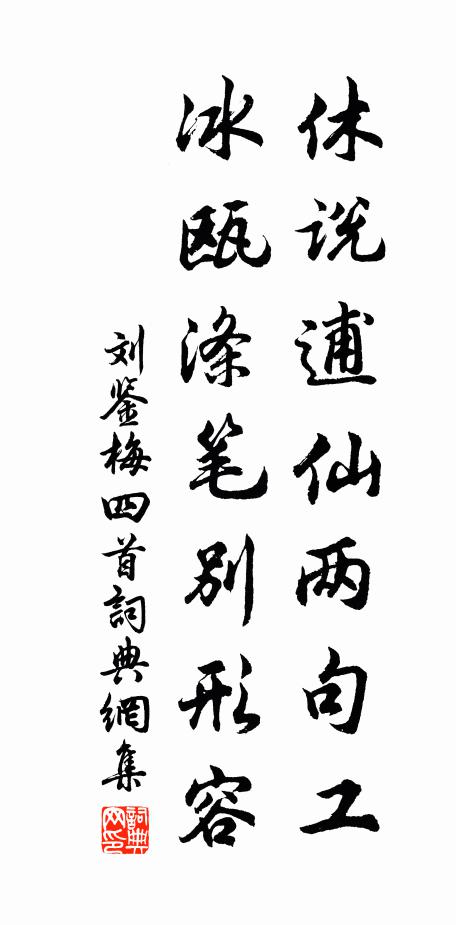 休说逋仙两句工
冰瓯涤笔别形容
刘鉴梅四首詞典網集
詞典
网印